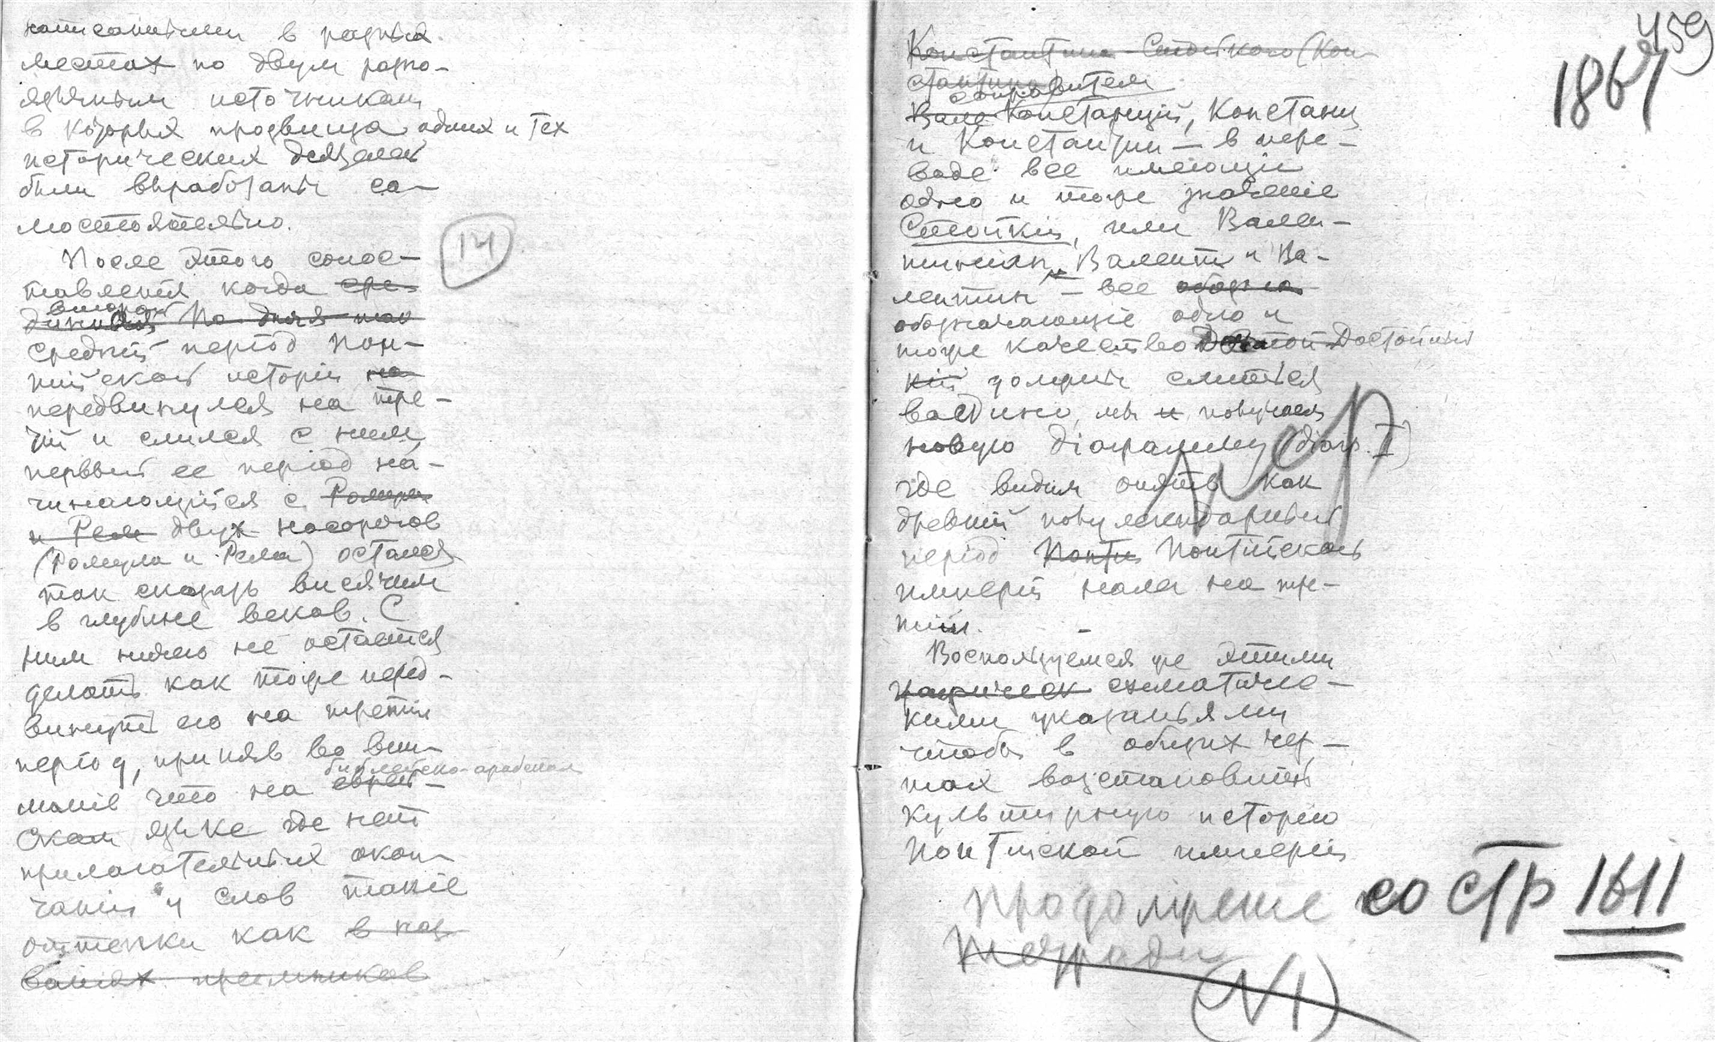 написанными в разных
местах по двум разно-
язычным источникам
в которых прозвища одних и тех
исторических деятелей
были выработаны са-
мостоятельно.
14
После этого сопос-
тавления когда сре-
второй
По дня
средний период Пон-
тийской истории на
передвинулся на тре-
тій и слился с ним,
первый ее период на-
чинающийся с Ромула
и Рема двух носорогов
(Ромула и Рема) остался
так сказать висячим
в глубине веков. С
ним ничего не остается
делать как тоже перед-
винуть его на третий
период, приняв во вни-
библейско-арабском
маніе что на еврей-
ском языке где нет
прилагательных окон-
чаний и слов такіе
оттенки как в наз-
ваніях преемников
459
1867
Константина Стойкого (Кон-
стантина
соправители
Вале Констанцій, Констанц
и Константин — в пере-
воде все имеющіе
одно и тоже значеніе
Стойкій, или Вален-
тиніан, Валент и Ва-
лентин — все
обозначающіе одно и
тоже качество Достойный
кій должны слиться
воедино, мы и получаем
новую діаграмму (діагр. II)
где видим опять как
древній полулегендарный
період Понти Понтійской
имперіи налег на тре-
тий.
Воспользуемся же этими
графическ схематичес-
кими указаньями
чтобы в общих чер-
тах возстановить
культурную исторію
Понтійской имперіи
продолжение со стр 1611
тетради
(N1)